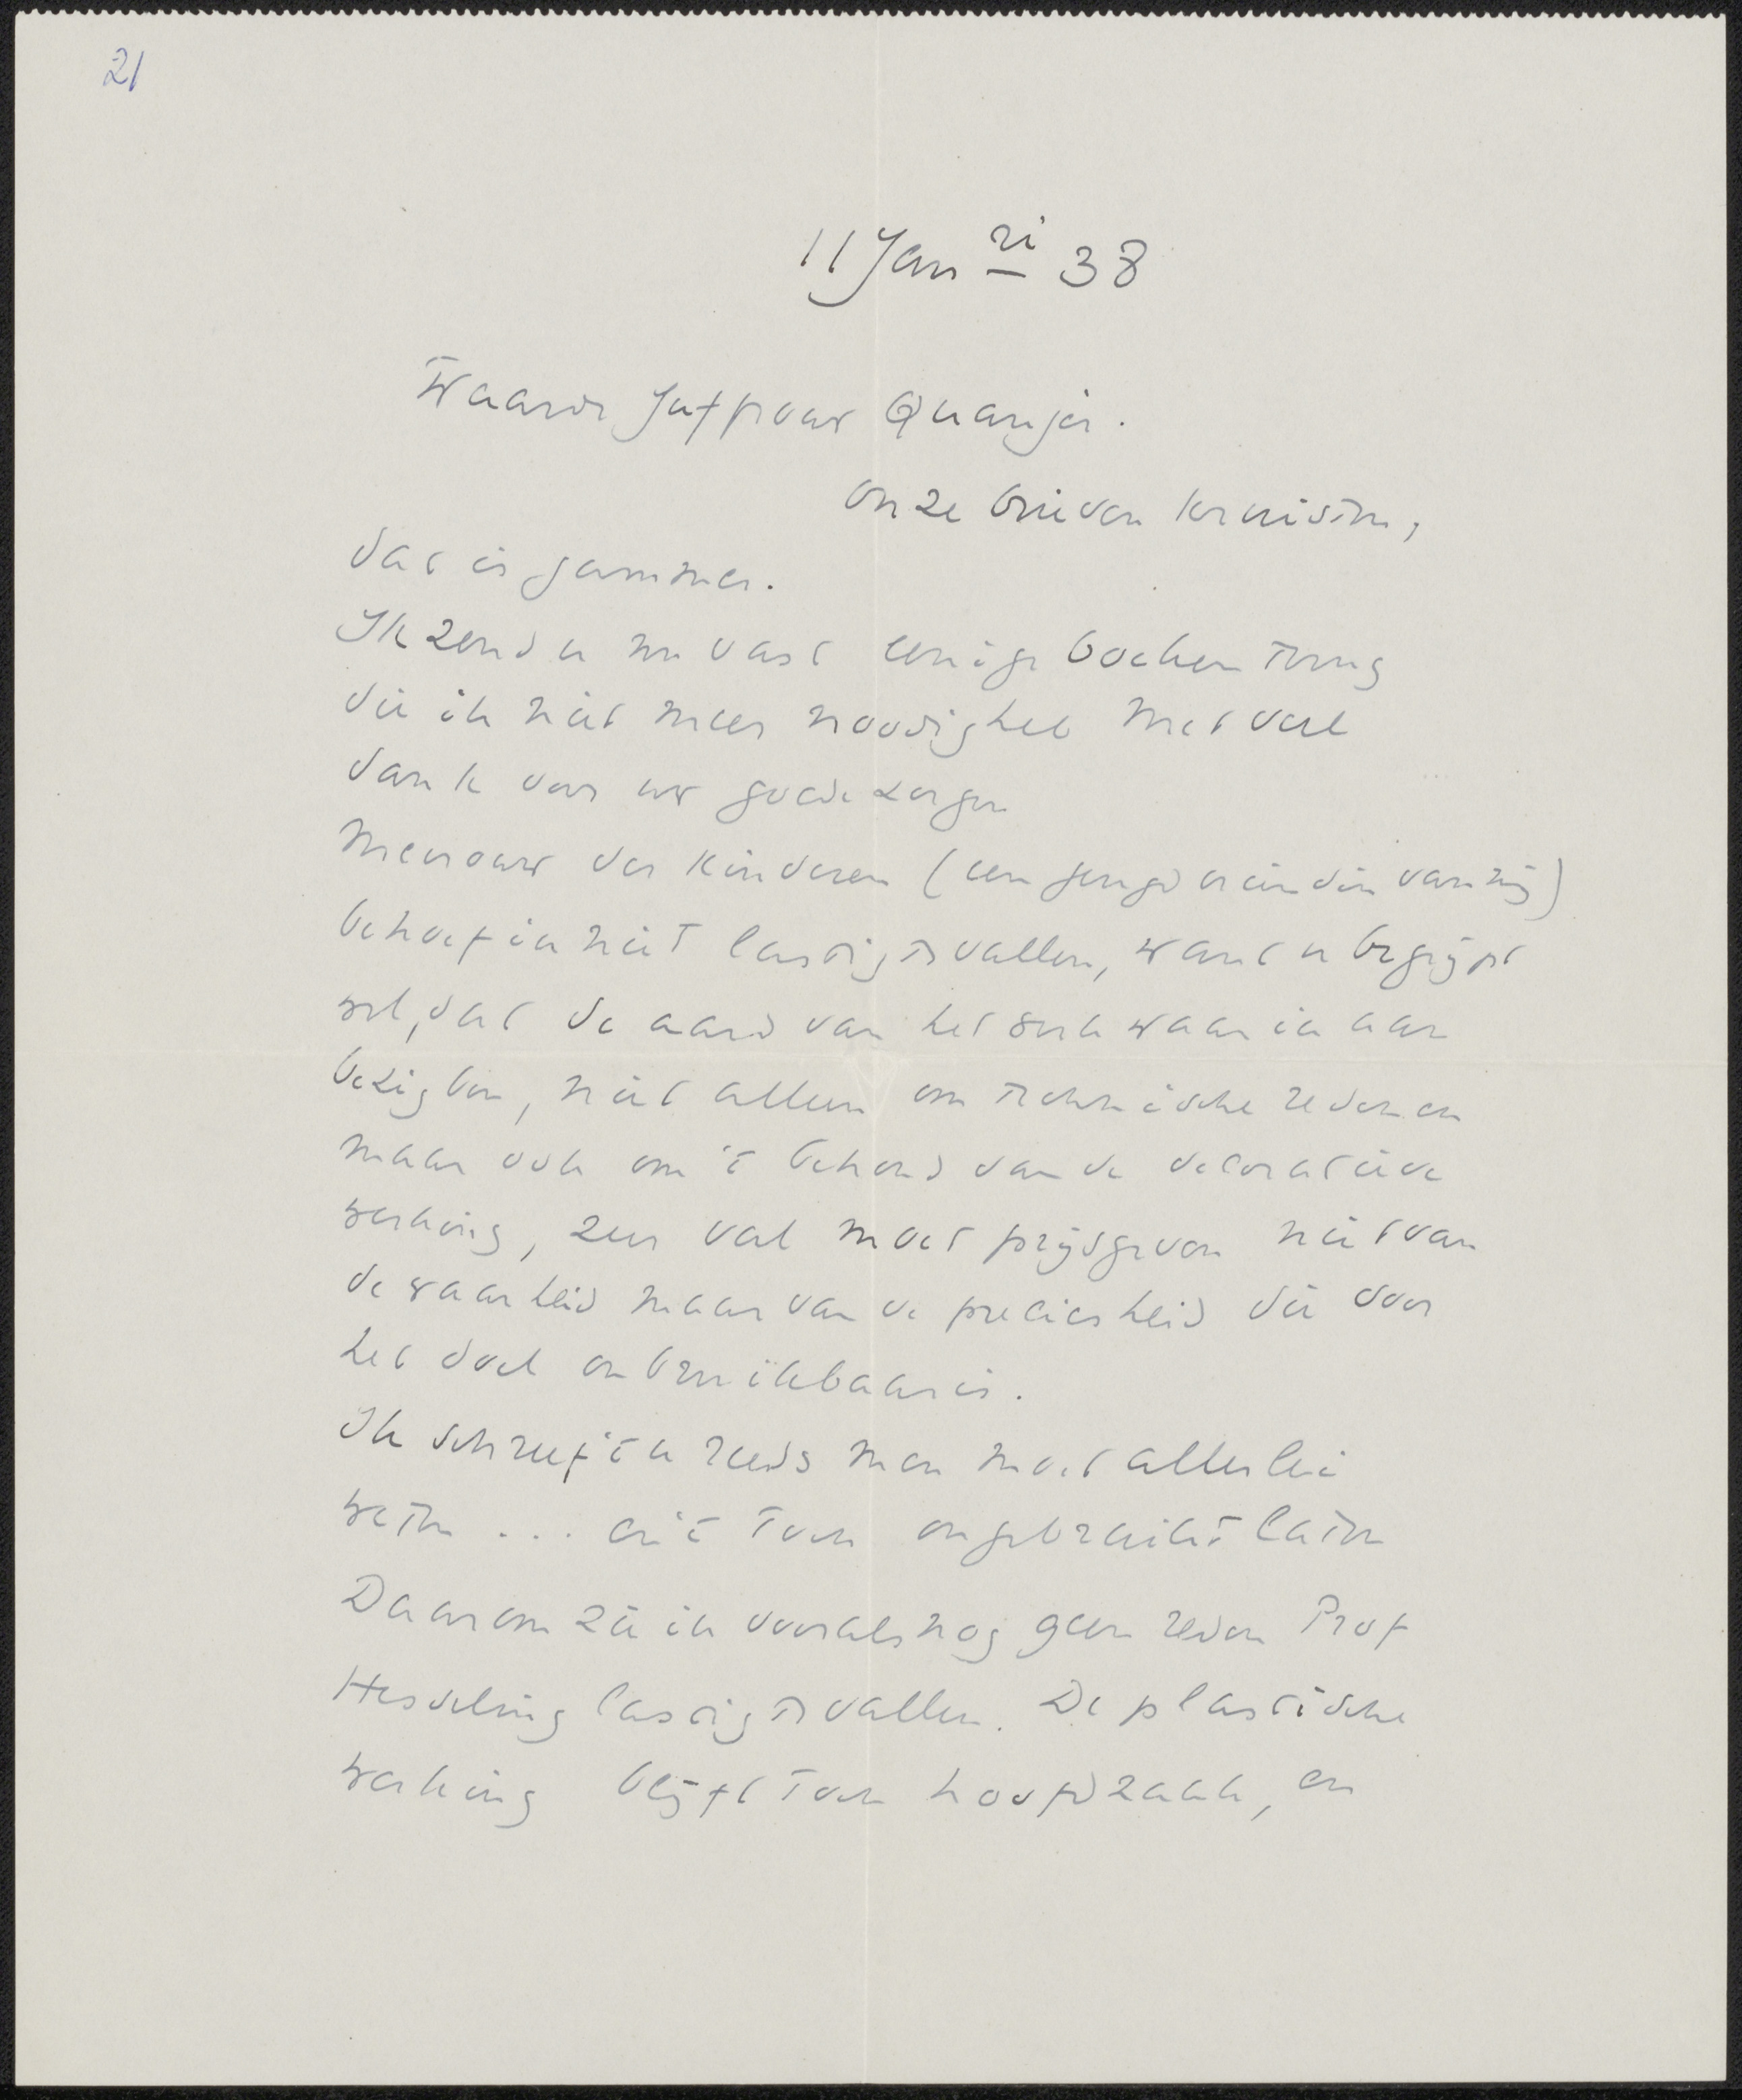 21
11 Jan ri 38
Waarde Juffrouw Quarjer.
Onze brieven kruisten,
dat is jammer.
Ik zend u nu vast eenige boeken terug
die ik niet meer noodig heb met veel
dank voor uw goede zorgen
Mevrouw der Kinderen (een jeugdvriendin van mij)
behoef ik niet lastig te vallen, want u begrijpt
wel, dat de aard van het werk waar ik aan
bezig ben, niet alleen om technische redenen
maar ook om 't behoud van de decoratieve
werking, zeer veel moet prijsgeven niet van
de waarheid maar van de preciesheid die voor
het doel onbruikbaar is.
Ik schreef 't u reeds men moet allerlei
weten ... en 't toch ongebruikt laten
Daarom zie ik vooralsnog geen reden Prof
Hesseling lastig te vallen. De plastische
werking blijft toch hoofdzaak, en